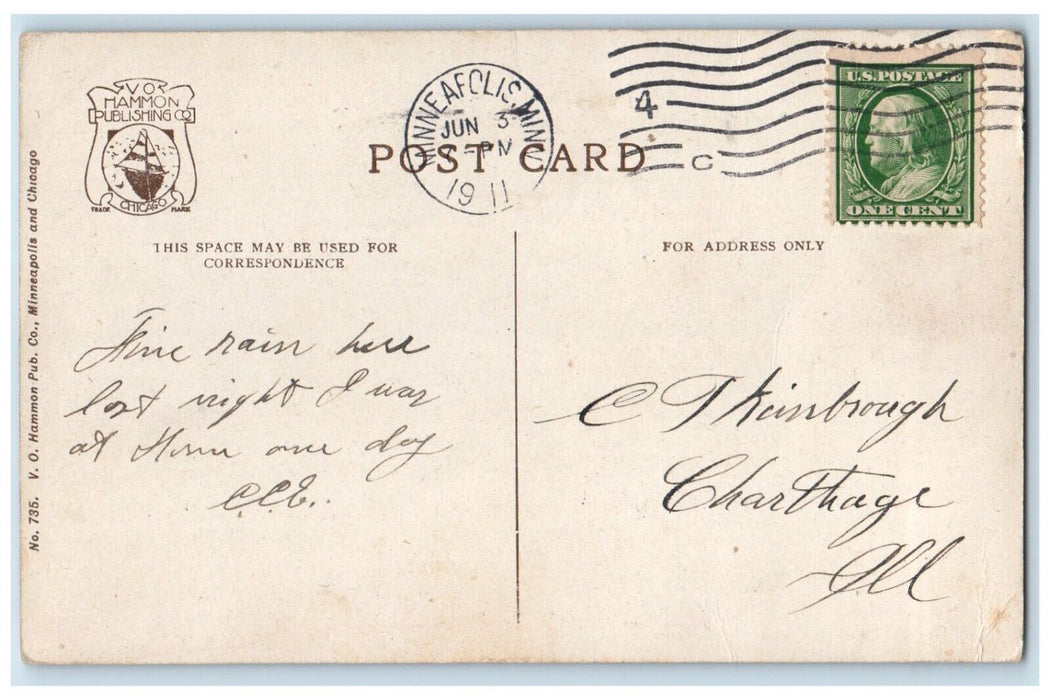 V O
HAMMON
PUBLISHING CO
CHICAGO
TRADE MARK
MINNEAPOLIS, MINN.
JUN 3
PM
1911
4
C
U.S. POSTAGE
ONE CENT
POST CARD
THIS SPACE MAY BE USED FOR
CORRESPONDENCE
FOR ADDRESS ONLY
No. 735. V. O. Hammon Pub. Co., Minneapolis and Chicago
Fine rain here
last night I was
at Home one day
C.C.E.
C T Kimbrough
Charthage
Ill